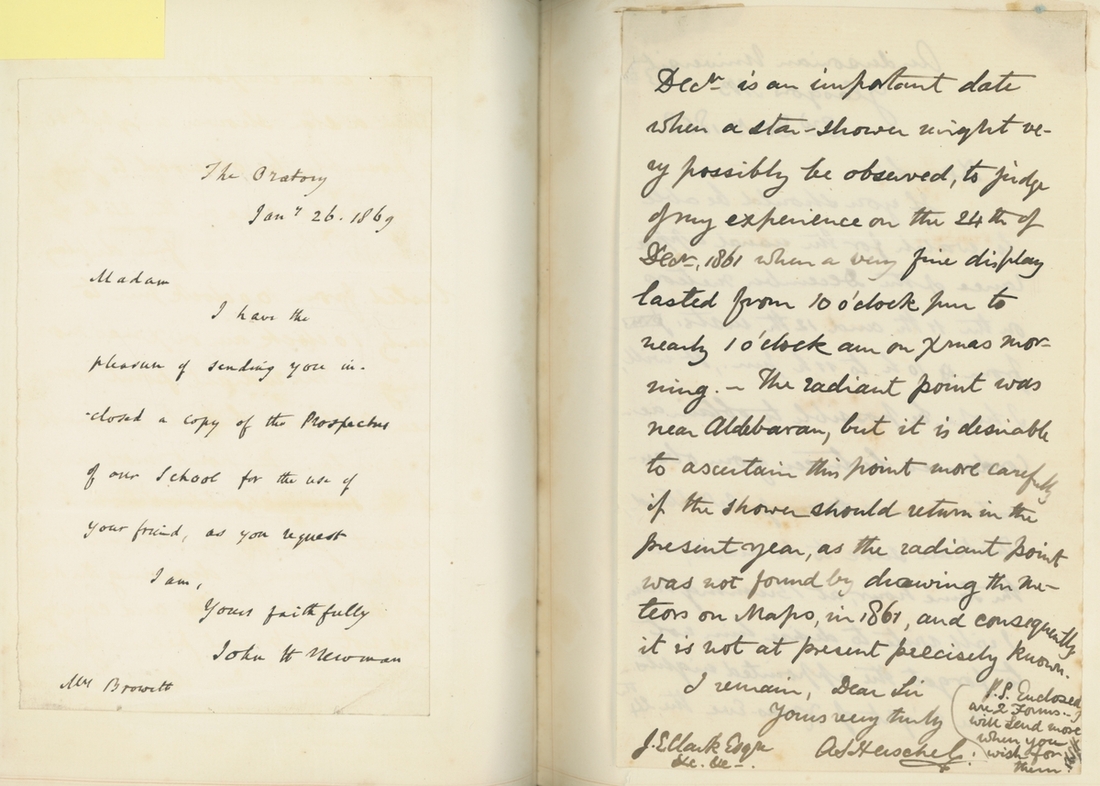 The Oratory
Jany 26. 1869
Madam
I have the
pleasure of sending you in-
-closed a copy of the Prospectus
of our School for the use of
your friend, as you request
I am,
Yours faithfully
John H Newman
Mrs Browett
Decr is an important date
when a star-shower might ve-
ry possibly be observed, to judge
of my experience on the 24th of
Decr, 1861 when a very fine display
lasted from 10 o'clock pm to
nearly 1 o'clock am on Xmas mor-
ning. – The radiant point was
near Aldebaran, but it is desirable
to ascertain this point more carefully
if the shower should return in the
present year, as the radiant point
was not found by drawing the me-
teors on Maps, in 1861, and consequently
it is not at present precisely known.
I remain, Dear Sir
Yours very truly
A S Herschel.
J. E Clark Esqre
&c. &c –.
P.S. Enclosed
are 2 Forms –
will send more
when you
wish for
them.